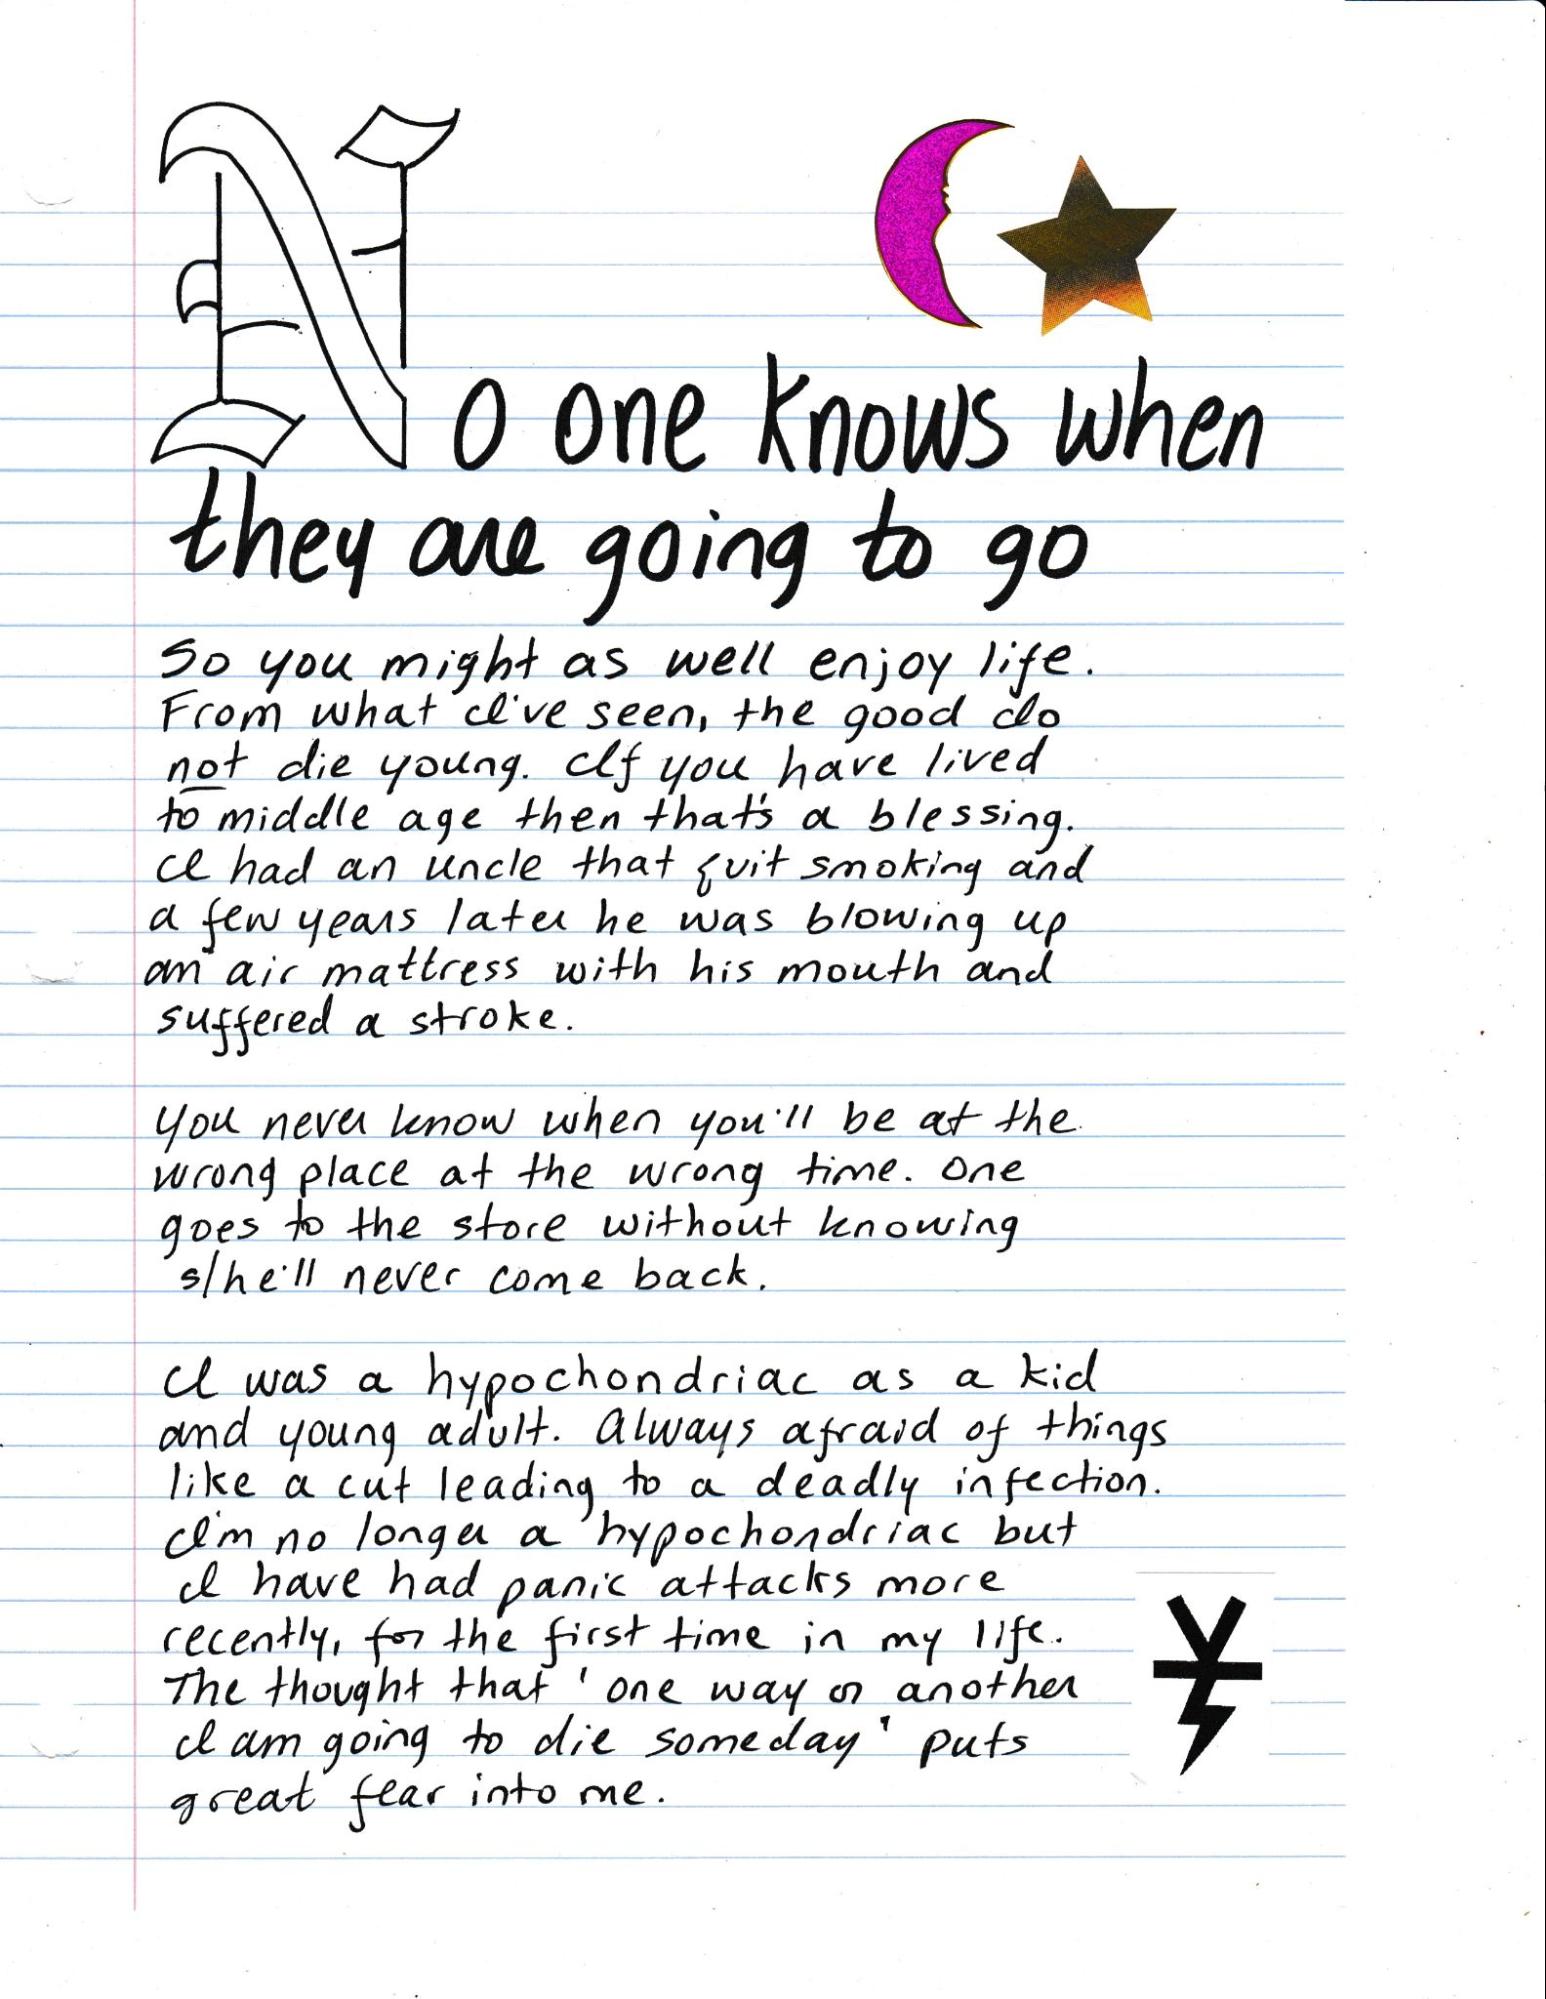 No one knows when
they are going to go
So you might as well enjoy life.
From what I've seen, the good do
not die young. If you have lived
to middle age then that's a blessing.
I had an uncle that quit smoking and
a few years later he was blowing up
an air mattress with his mouth and
suffered a stroke.
You never know when you'll be at the
wrong place at the wrong time. One
goes to the store without knowing
s/he'll never come back.
I was a hypochondriac as a kid
and young adult. Always afraid of things
like a cut leading to a deadly infection.
I'm no longer a hypochondriac but
I have had panic attacks more
recently, for the first time in my life.
The thought that 'one way or another
I am going to die someday' puts
great fear into me.